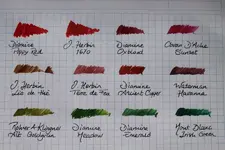 Diamine Diamine
Poppy Red
J. Herbin
1670
Diamine
Oxblood
Caran D'Ache
Sunset
J. Herbin
Lie de Thé
J. Herbin
Terre de Feu
Diamine
Ancient Copper
Waterman
Havanna
Rohrer & Klingner
Alt Goldgrün
Diamine
Meadow
Diamine
Emerald
Mont Blanc
Irish Green